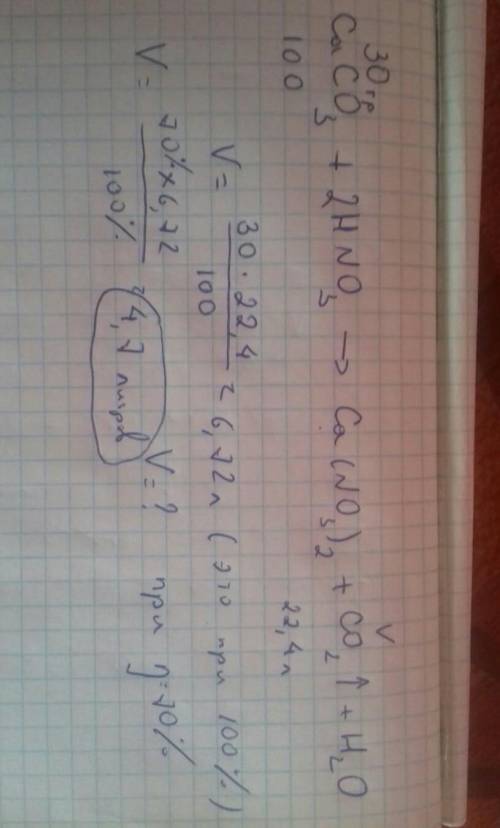 30гр V
CaCO3 + 2HNO3 → Ca(NO3)2 + CO2↑ + H2O
100 22,4л
V = 30 · 22,4 / 100 = 6,72л (это при 100%)
V = 70% × 6,72 / 100% = 4,7 литров V = ? при η=70%